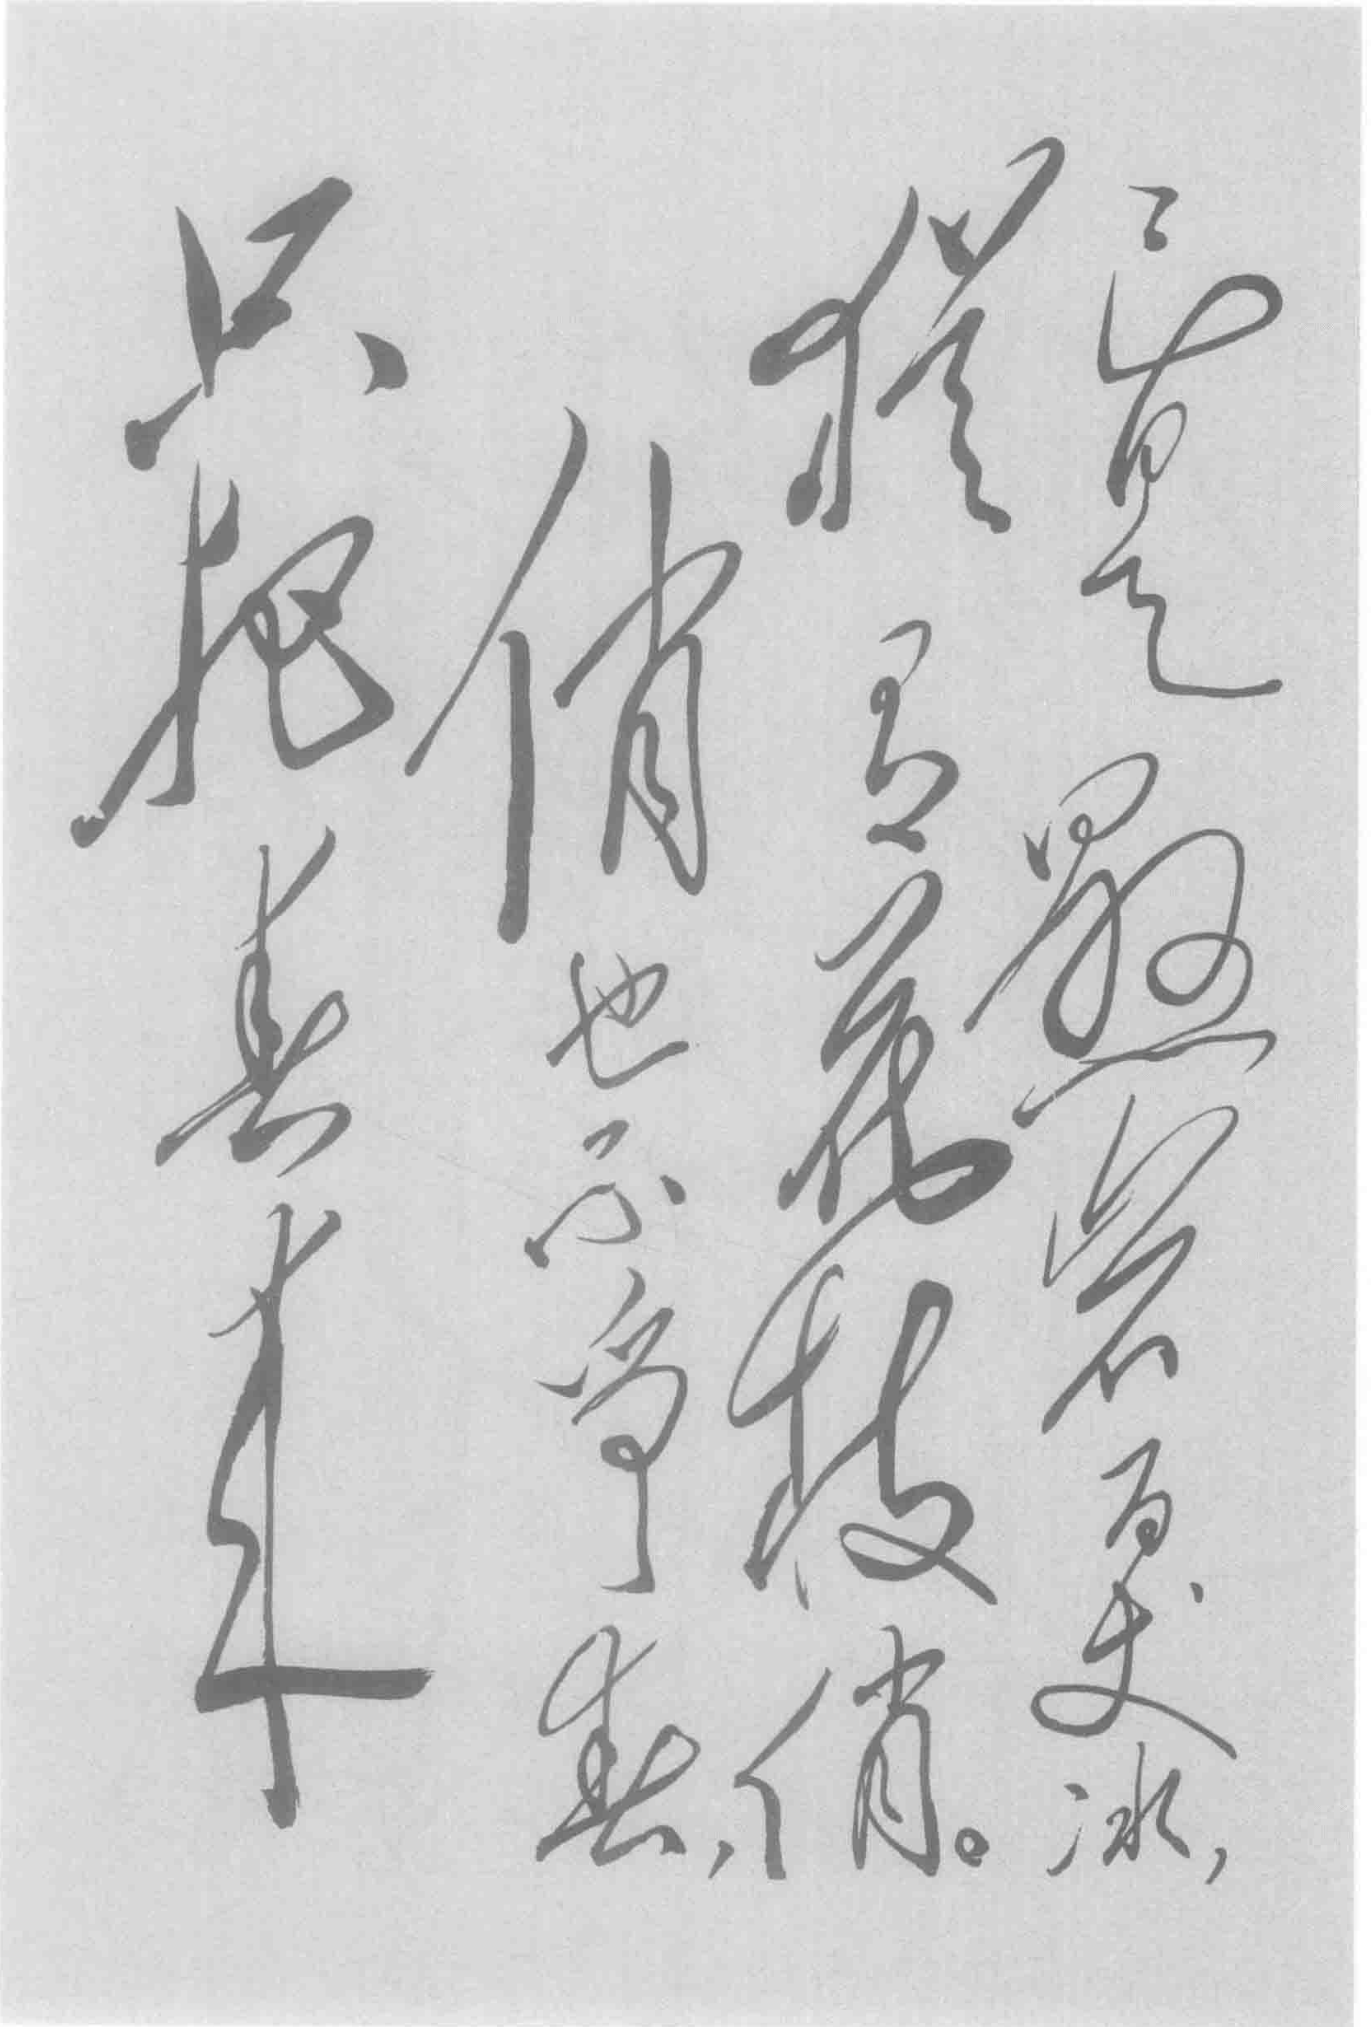 已是懸岩百丈冰,
猶有花枝俏。
俏也不争春,
只把春来